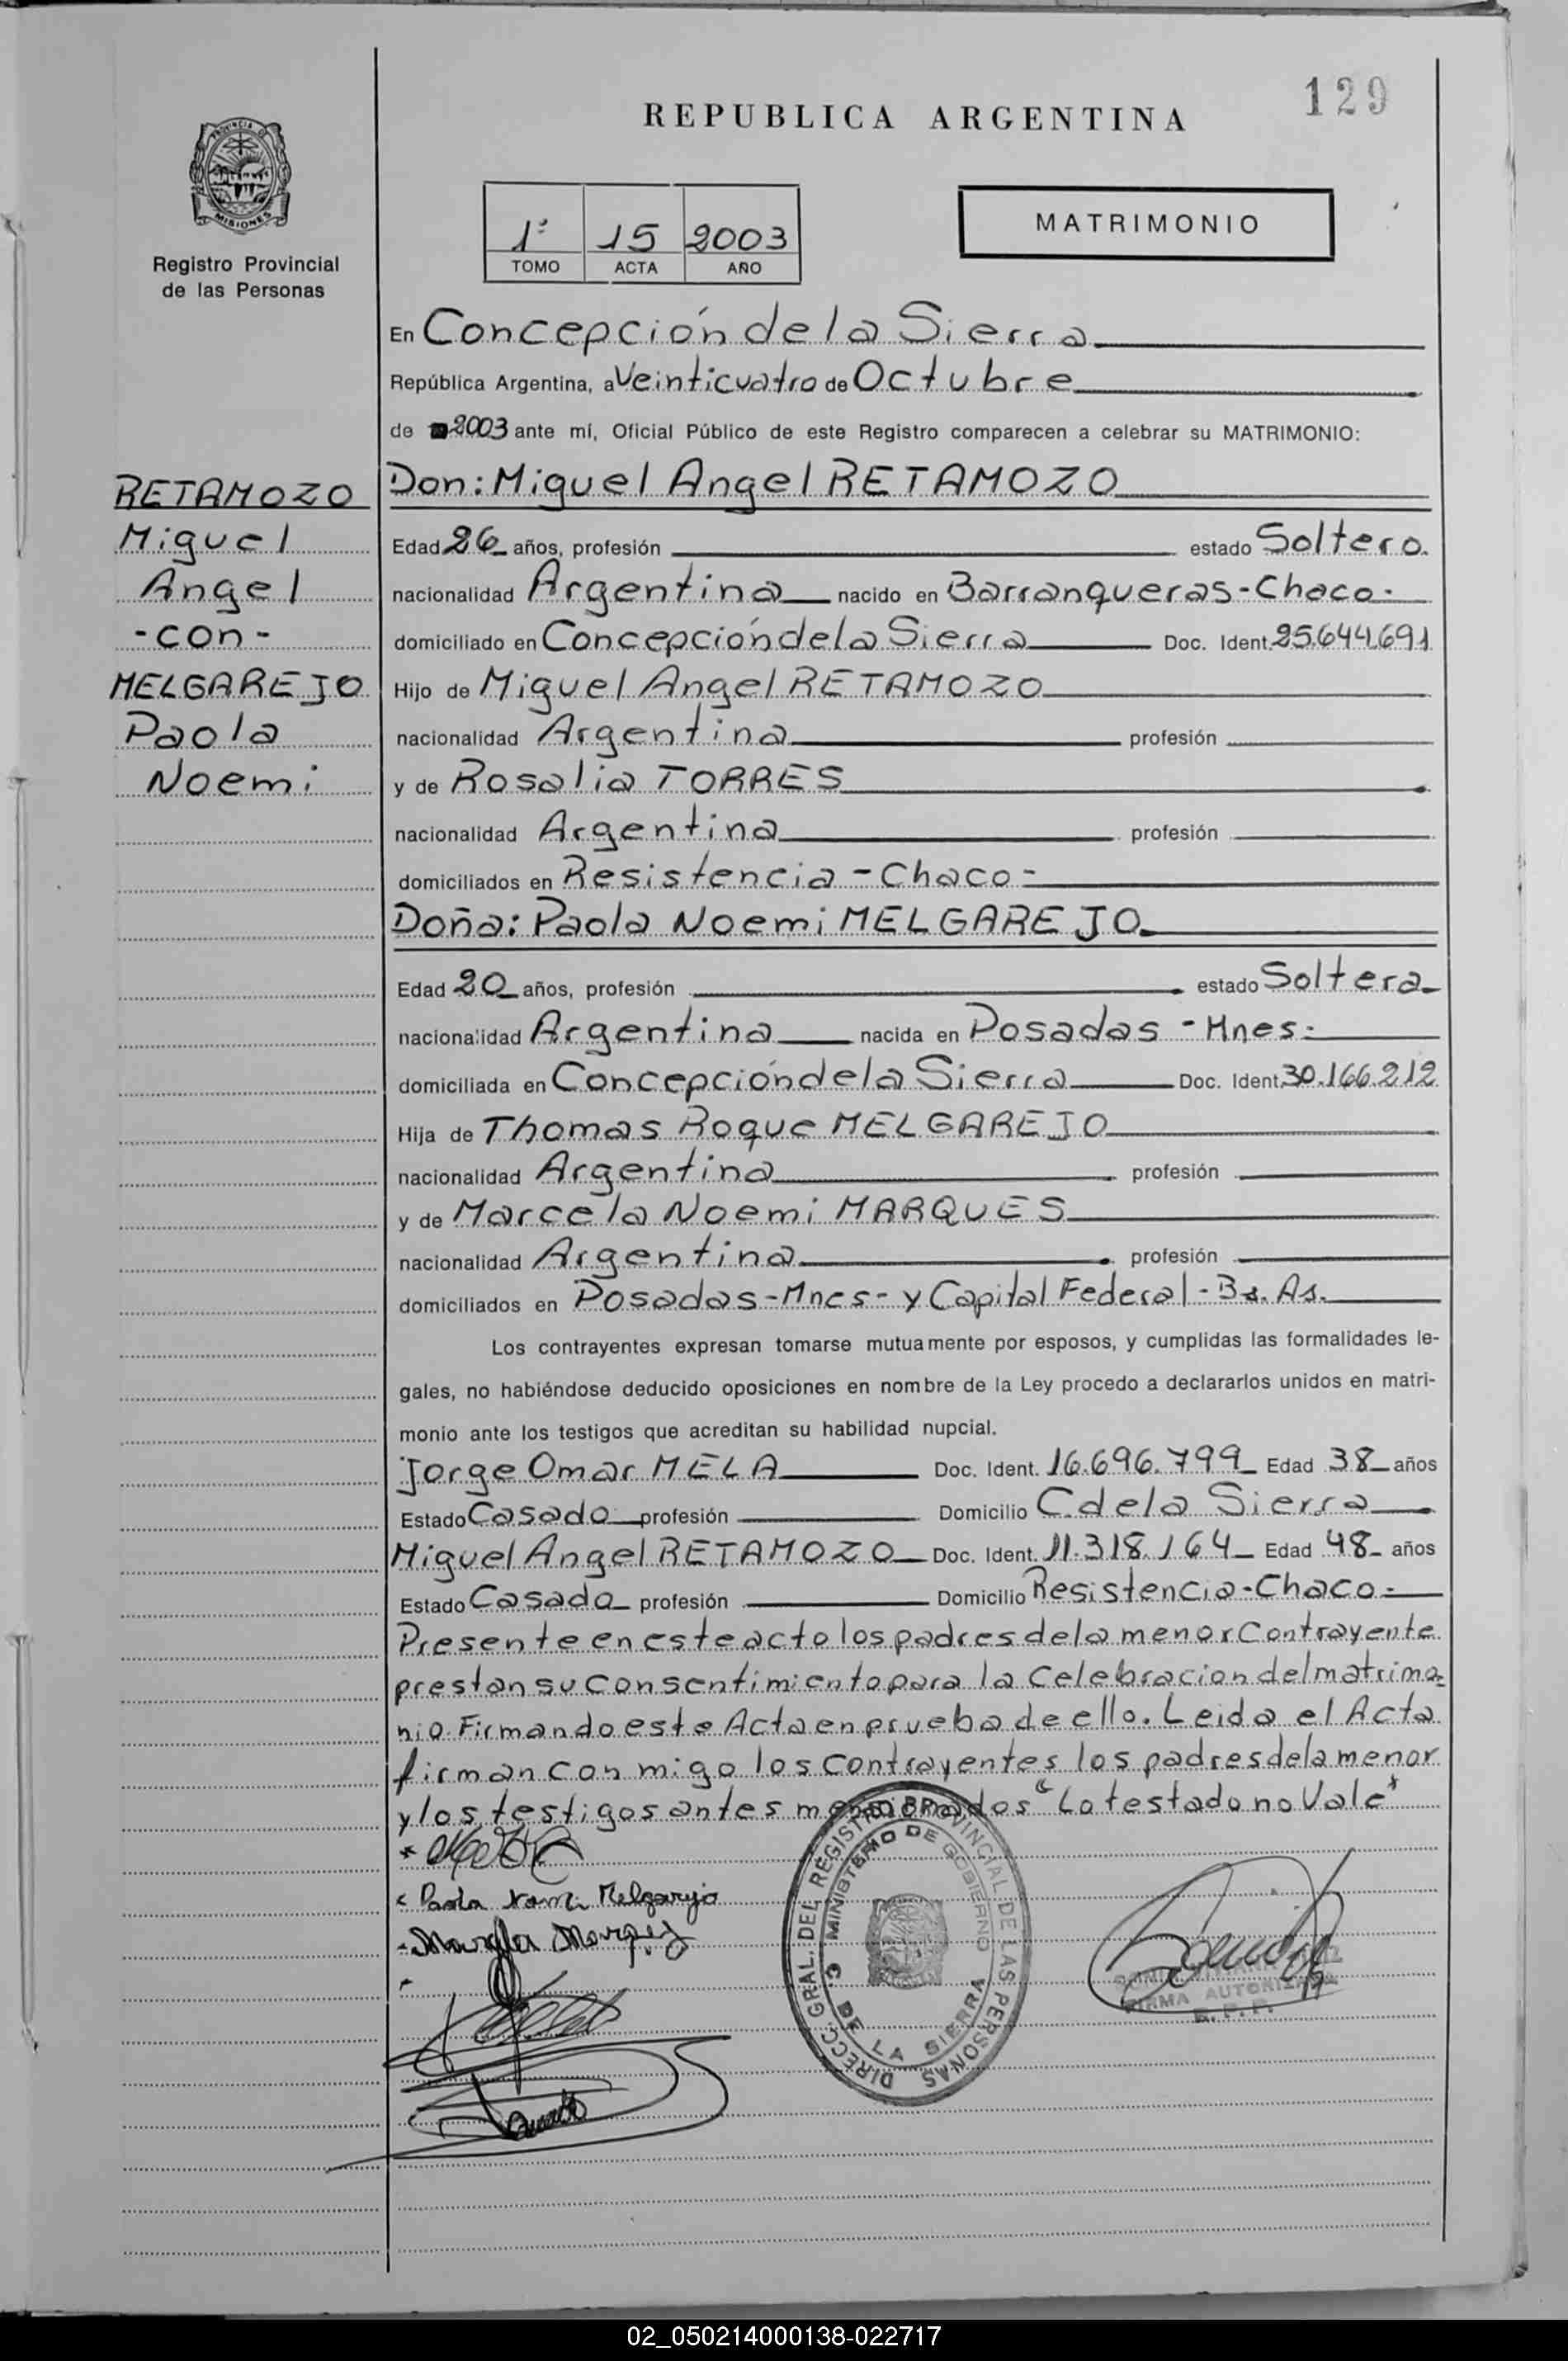 129
REPUBLICA ARGENTINA
PROVINCIA DE
MISIONES
Registro Provincial
de las Personas
1º 15 2003
TOMO ACTA AÑO
MATRIMONIO
En Concepción de la Sierra
República Argentina, a Veinticuatro de Octubre
de 2003 ante mí, Oficial Público de este Registro comparecen a celebrar su MATRIMONIO:
RETAMOZO
Miguel
Angel
-con-
MELGAREJO
Paola
Noemi
Don: Miguel Angel RETAMOZO
Edad 26 años, profesión estado Soltero.
nacionalidad Argentina nacido en Barranqueras-Chaco-
domiciliado en Concepción de la Sierra Doc. Ident. 25.644.691
Hijo de Miguel Angel RETAMOZO
nacionalidad Argentina profesión
y de Rosalia TORRES
nacionalidad Argentina profesión
domiciliados en Resistencia - Chaco-
Doña: Paola Noemi MELGAREJO.
Edad 20 años, profesión estado Soltera
nacionalidad Argentina nacida en Posadas - Mnes.
domiciliada en Concepción de la Sierra Doc. Ident. 30.166.212
Hija de Thomas Roque MELGAREJO
nacionalidad Argentina profesión
y de Marcela Noemi MARQUES
nacionalidad Argentina profesión
domiciliados en Posadas-Mnes- y Capital Federal - Bs. As.
Los contrayentes expresan tomarse mutuamente por esposos, y cumplidas las formalidades le-
gales, no habiéndose deducido oposiciones en nombre de la Ley procedo a declararlos unidos en matri-
monio ante los testigos que acreditan su habilidad nupcial.
Jorge Omar MELA Doc. Ident. 16.696.799 Edad 38 años
Estado Casado profesión Domicilio C. de la Sierra
Miguel Angel RETAMOZO Doc. Ident. 11.318.164 Edad 48 años
Estado Casado profesión Domicilio Resistencia-Chaco-
Presente en este acto los padres de la menor Contrayente
prestan su Consentimiento para la Celebracion del matrimo-
nio. Firmando este Acta en prueba de ello. Leida el Acta
firman con migo los Contrayentes los padres de la menor
y los testigos antes mencionados "Lo testado no Vale"
Paola Noemi Melgarejo
Marcela Marques
DIRECC. GRAL. DEL REGISTRO PROVINCIAL DE LAS PERSONAS
MINISTERIO DE GOBIERNO
C. DE LA SIERRA
FIRMA AUTORIZADA
R. P. P.
02_050214000138-022717